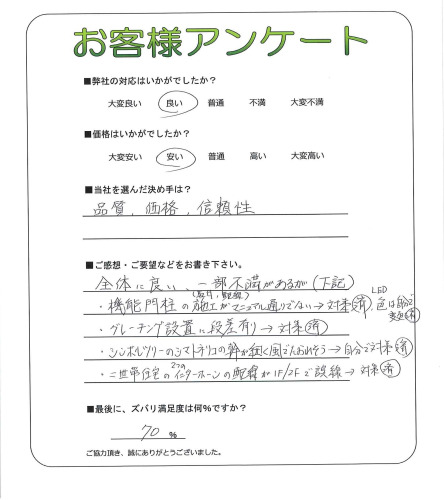 お客様アンケート
■弊社の対応はいかがでしたか?
大変良い 良い 普通 不満 大変不満
■価格はいかがでしたか?
大変安い 安い 普通 高い 大変高い
■当社を選んだ決め手は?
品質、価格、信頼性
■ご感想・ご要望などをお書き下さい。
全体に良い、一部不満があるが(下記)
・機能門柱の施工がマニュアル通りでない→対策済、LED色は自分で
・グレーチング設置に段差有り→対策済
・シンボルツリーのシマトネリコの幹が細く風でたおれそう→自分で対策済
・二世帯住宅の2つのインターホーンの配線が1F/2Fで誤線→対策済
■最後に、ズバリ満足度は何%ですか?
70 %
ご協力頂き、誠にありがとうございました。